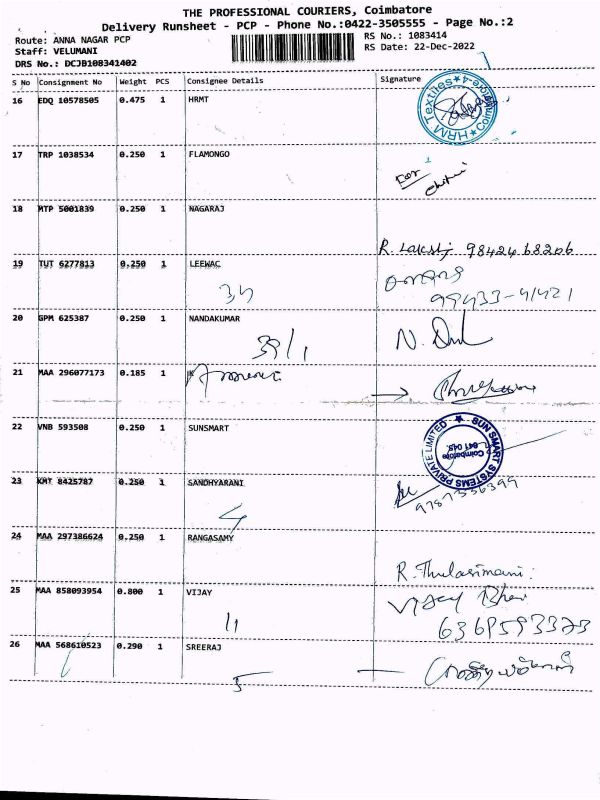 THE PROFESSIONAL COURIERS, Coimbatore
Delivery Runsheet - PCP - Phone No.:0422-3505555 - Page No.:2
Route: ANNA NAGAR PCP RS No.: 1083414
Staff: VELUMANI RS Date: 22-Dec-2022
DRS No.: DCJB108341402
S No Consignment No Weight PCS Consignee Details Signature
16 EDQ 10578505 0.475 1 HRMT
HRM Textiles
17 TRP 1038534 0.250 1 FLAMONGO
For
18 MTP 5001839 0.250 1 NAGARAJ
R. Lakshi 98424 68206
19 TUT 6277813 0.250 1 LEEWAC
99433-41421
20 GPM 625387 0.250 1 NANDAKUMAR
39/1 N.
21 MAA 296077173 0.185 1
22 VNB 593508 0.250 1 SUNSMART
SUN SMART SYSTEMS PRIVATE LIMITED
Coimbatore
641 045.
23 KMT 8425787 0.250 1 SANDHYARANI
9787556399
24 MAA 297386624 0.250 1 RANGASAMY
R. Thulasimani
25 MAA 858093954 0.800 1 VIJAY
Vijay Bhai
11 6369593373
26 MAA 568610523 0.290 1 SREERAJ
5